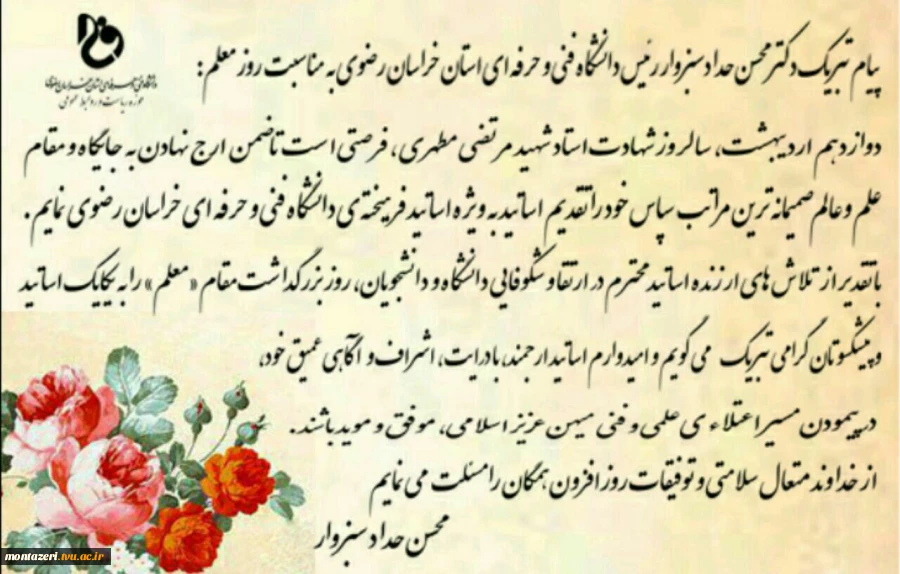 پیام تبریک دکتر محسن حداد سبزوار رئیس دانشگاه فنی و حرفه ای استان خراسان رضوی به مناسبت روز معلم :
حوزه ریاست و روابط عمومی
دوازدهم اردیبهشت، سالروز شهادت استاد شهید مرتضی مطهری، فرصتی است تا ضمن ارج نهادن به جایگاه و مقام
علم و عالم صمیمانه ترین مراتب سپاس خود را تقدیم اساتید به ویژه اساتید فرهیخته ی دانشگاه فنی و حرفه ای خراسان رضوی نمایم.
با تقدیر از تلاش های ارزنده اساتید محترم در ارتقا و شکوفایی دانشگاه و دانشجویان، روز بزرگداشت مقام «معلم» را به یکایک اساتید
و پیشکسوتان گرامی تبریک می گویم و امیدوارم اساتید ارجمند، با درایت، اشراف و آگاهی عمیق خود،
در پیمودن مسیر اعتلاء ی علمی و فنی میهن عزیز اسلامی، موفق و موید باشند.
از خداوند متعال سلامتی و توفیقات روز افزون همگان را مسئلت می نمایم
محسن حداد سبزوار
montazeri.tvu.ac.ir